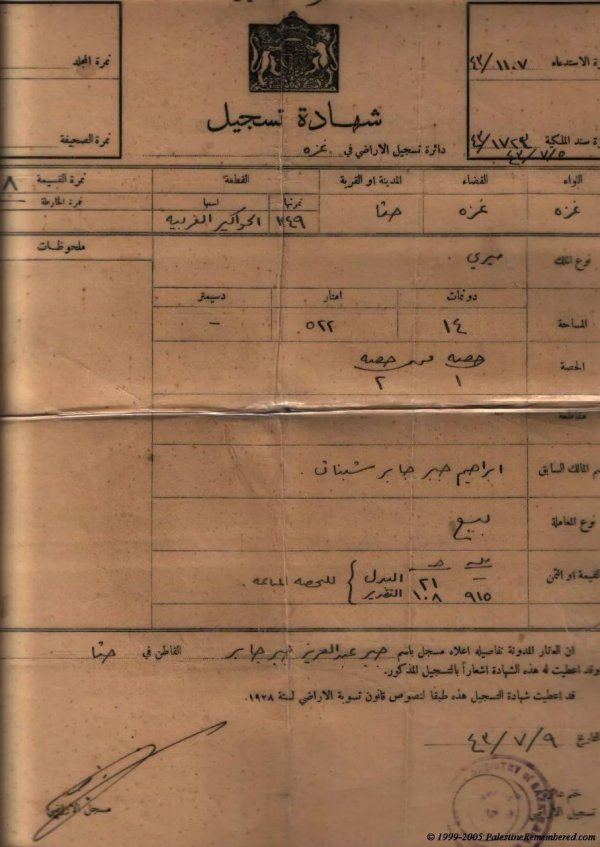 نمرة المجلد
رة الاستدعاء ٤٣/١١٠٧
شهادة تسجيل
دائرة تسجيل الاراضي في غزه
نمرة الصحيفة
رة سند الملكية ٤٣/١٧٢٣
٤٣/٧/٥
اللواء القضاء المدينة او القرية القطعة نمرة القسيمة ٨
نمرتها اسمها نمرة الخارطة
غزه غزه حتا ٧٤٩ الحواكير الغربيه
ملحوظات
نوع الملك ميري.
دونمات امتار دسيمتر
المساحة ١٤ ٥٢٢ –
الحصة حصه من حصه
١ ٢
مقاطعة
م المالك السابق ابراهيم جبر جابر
نوع المعاملة بيع
القيمة او الثمن
– ٢١ البدل للحصه المباعه.
٩١٥ ١٠٨ التقدير
ان العقار المدونة تفاصيله اعلاه مسجل باسم جبر عبدالعزيز جبر جابر القاطن في حتا
وقد اعطيت له هذه الشهادة اشعاراً بالتسجيل المذكور.
قد اعطيت شهادة التسجيل هذه طبقا لنصوص قانون تسوية الاراضي لسنة ١٩٢٨.
التاريخ ٤٣/٧/٩
مسجل الاراضي
ختم دائرة
تسجيل الاراضي
REGISTRY OF GAZA
© 1999-2005 PalestineRemembered.com